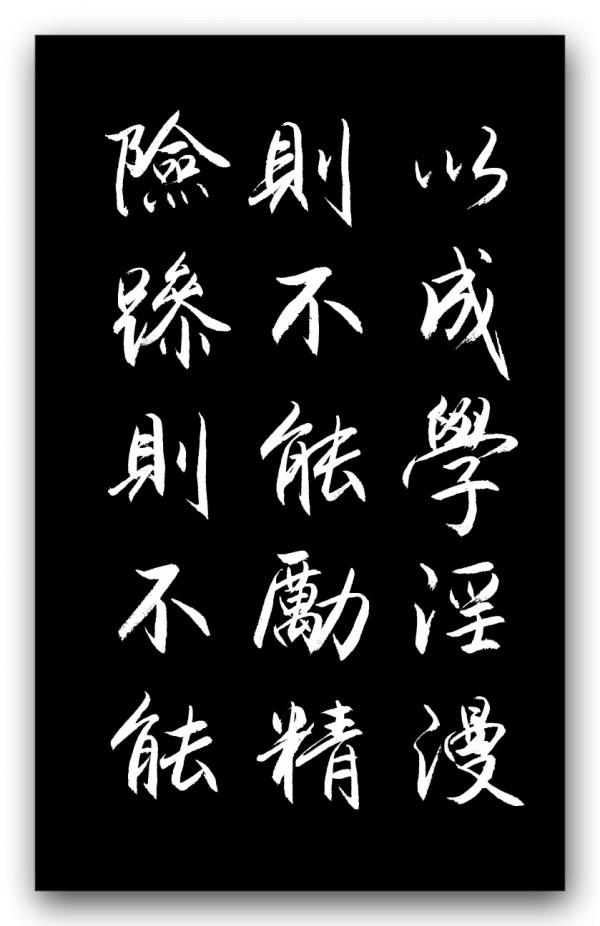 以成學淫漫
則不能勵精
險躁則不能